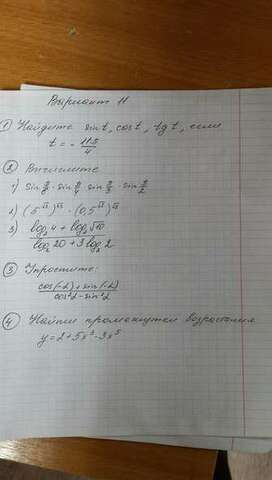 Вариант 11
① Найдите sin t, cos t, tg t, если
t = - 11π/4
② Вычислите
1) sin π/6 · sin π/4 · sin π/3 · sin π/2
2) (5^√5)^√5 · (0,5^√5)^√5
3) (log₂ 4 + log₂ √10) / (log₂ 20 + 3 log₂ 2)
③ Упростите:
(cos(-α) + sin(-α)) / (cos²α - sin²α)
④ Найти промежутки возрастания
y = 2 + 5x³ - 3x⁵